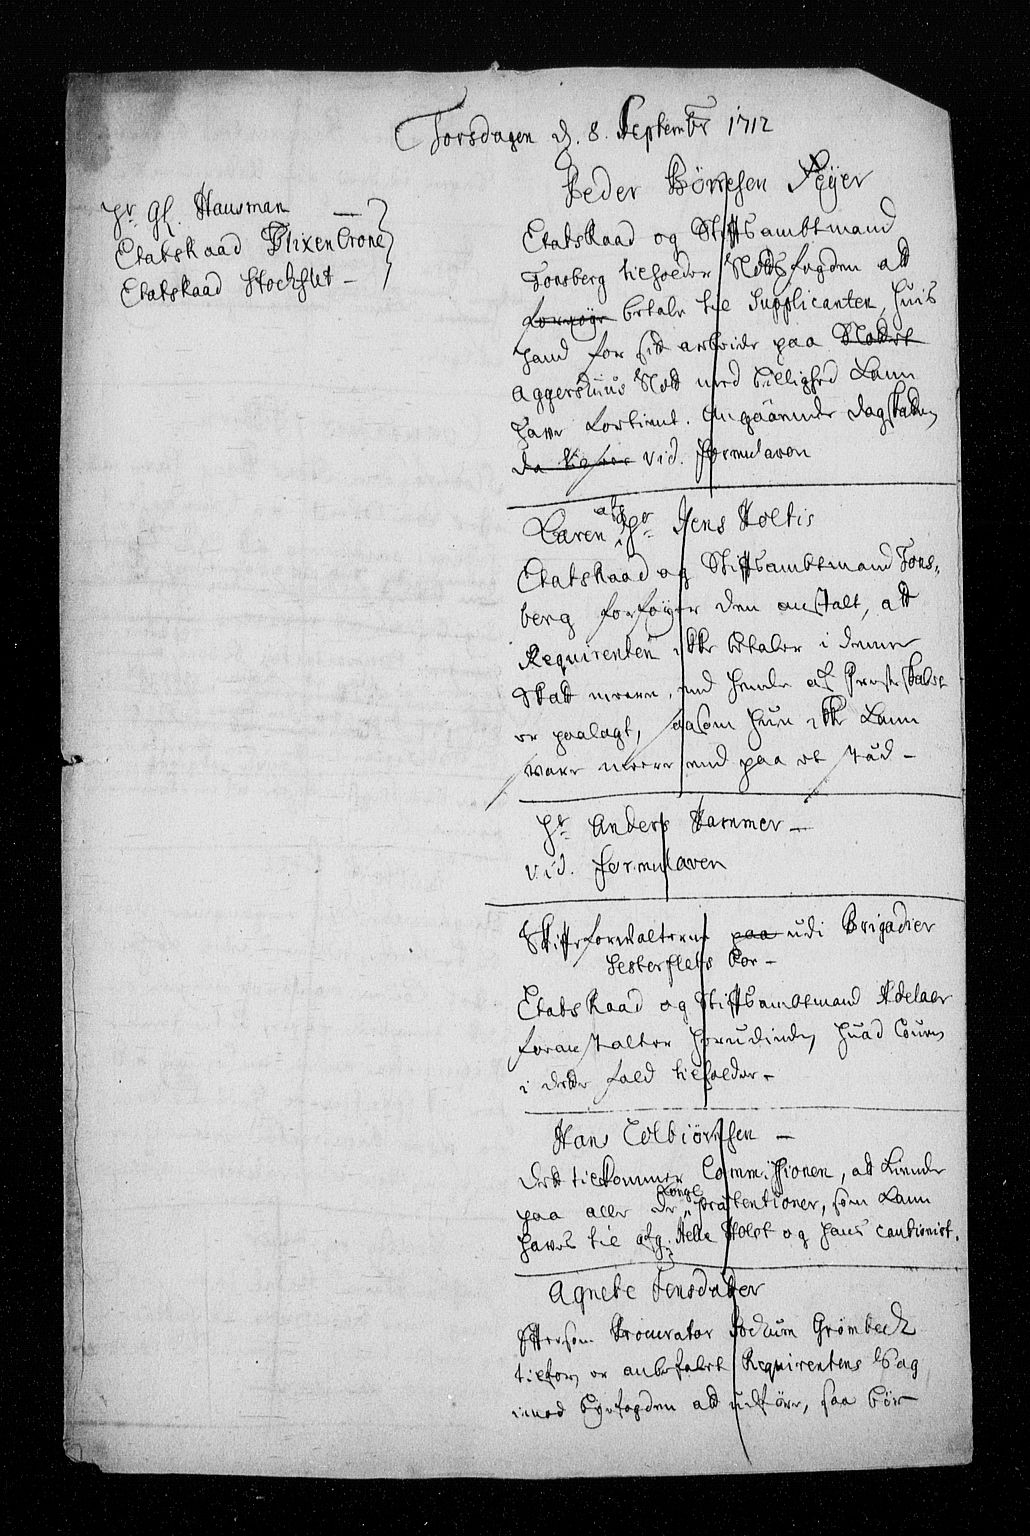 Torsdagen d. 8. Septembr 1712
Hr. Gl. Hausman
Etatskaad Flixencrone
Etatskaad Stockflet -
Peder Börresen Reyer
Etatskaad og Stiftsambtmand
Tonsberg tilholder Slodsfogden att
betale til Supplicanten, huis
hand for sitt arbeide paa Slodet
Aggershuus Slott med billighed kand
have fortient. angaaende dagskatten
vid. formularen
Karen afg. Hr. Jens Holtis
Etatskaad og Stiftsambtmand Tons-
berg forföyer den anstalt, att
Requirenten ikke betaler i denne
Skatt meere, end hende af Preste Kaldet
er paalagt, saasom hun ikke kand
vare meere end paa et stæd -
Hr. Anders Hammer -
vid. formularen
Skifteforvalterne paa udi Brigadier
Boe -
Etatskaad og Stiftsambtmand Adelaer
foranstalter herudinden huad Louen
i dette fald tilholder -
Hans Colbiörnsen -
Dett tilkommer Commissionen, att kiende
paa alle de Kongl. prætentioner, som kand
haves til afg. Nels Holst og hans cautionist.
Agnete Jensdatter
Eftersom Procurator Jochum Grömbeck
tilforn er anbefalet Requirentens Sag
imod Byefogden att udföre, saa bör